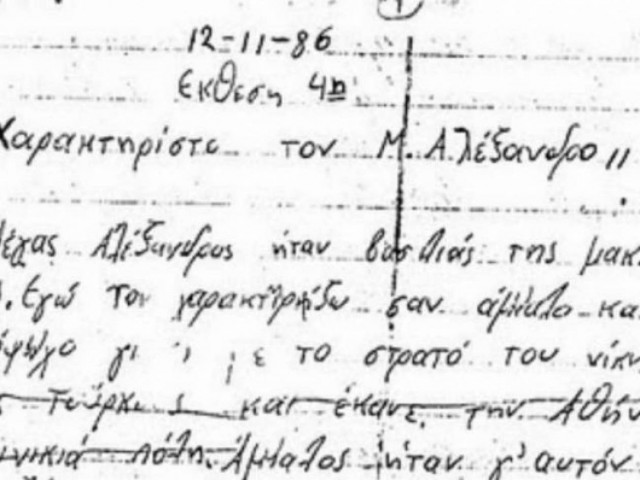 1
12-11-86
Εκθεση 4η
Χαρακτηρίστε τον Μ. Αλέξανδρο"
Αλέξανδρος ήταν βασιλιάς της μακ
Εγώ τον χαρακτηρίζω σαν άμιαλο κα
γι το στρατό του νίκη
Τούρκους και έκανε την Αθήν
πόλη. Άμιαλος ήταν γι' αυτόν